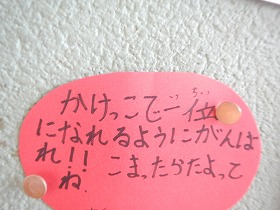 かけっこで一位
になれるようにがんば
れ!! こまったらたよって
ね.